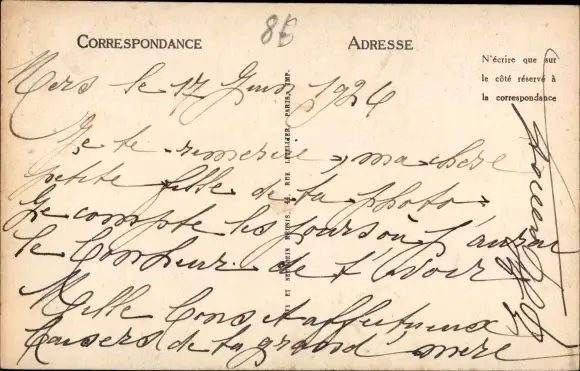 86
CORRESPONDANCE
ADRESSE
N'écrire que sur
le côté réservé à
la correspondance
Mers le 17 Juin 1926
Je te remercie, ma chère
petite fille de ta photo
Je compte les jours où j'aurai
le bonheur de t'avoir
Mille bons et affectueux
baisers de ta grand'mère
RUE LETELLIER, PARIS, IMP.
RÉUNIS,